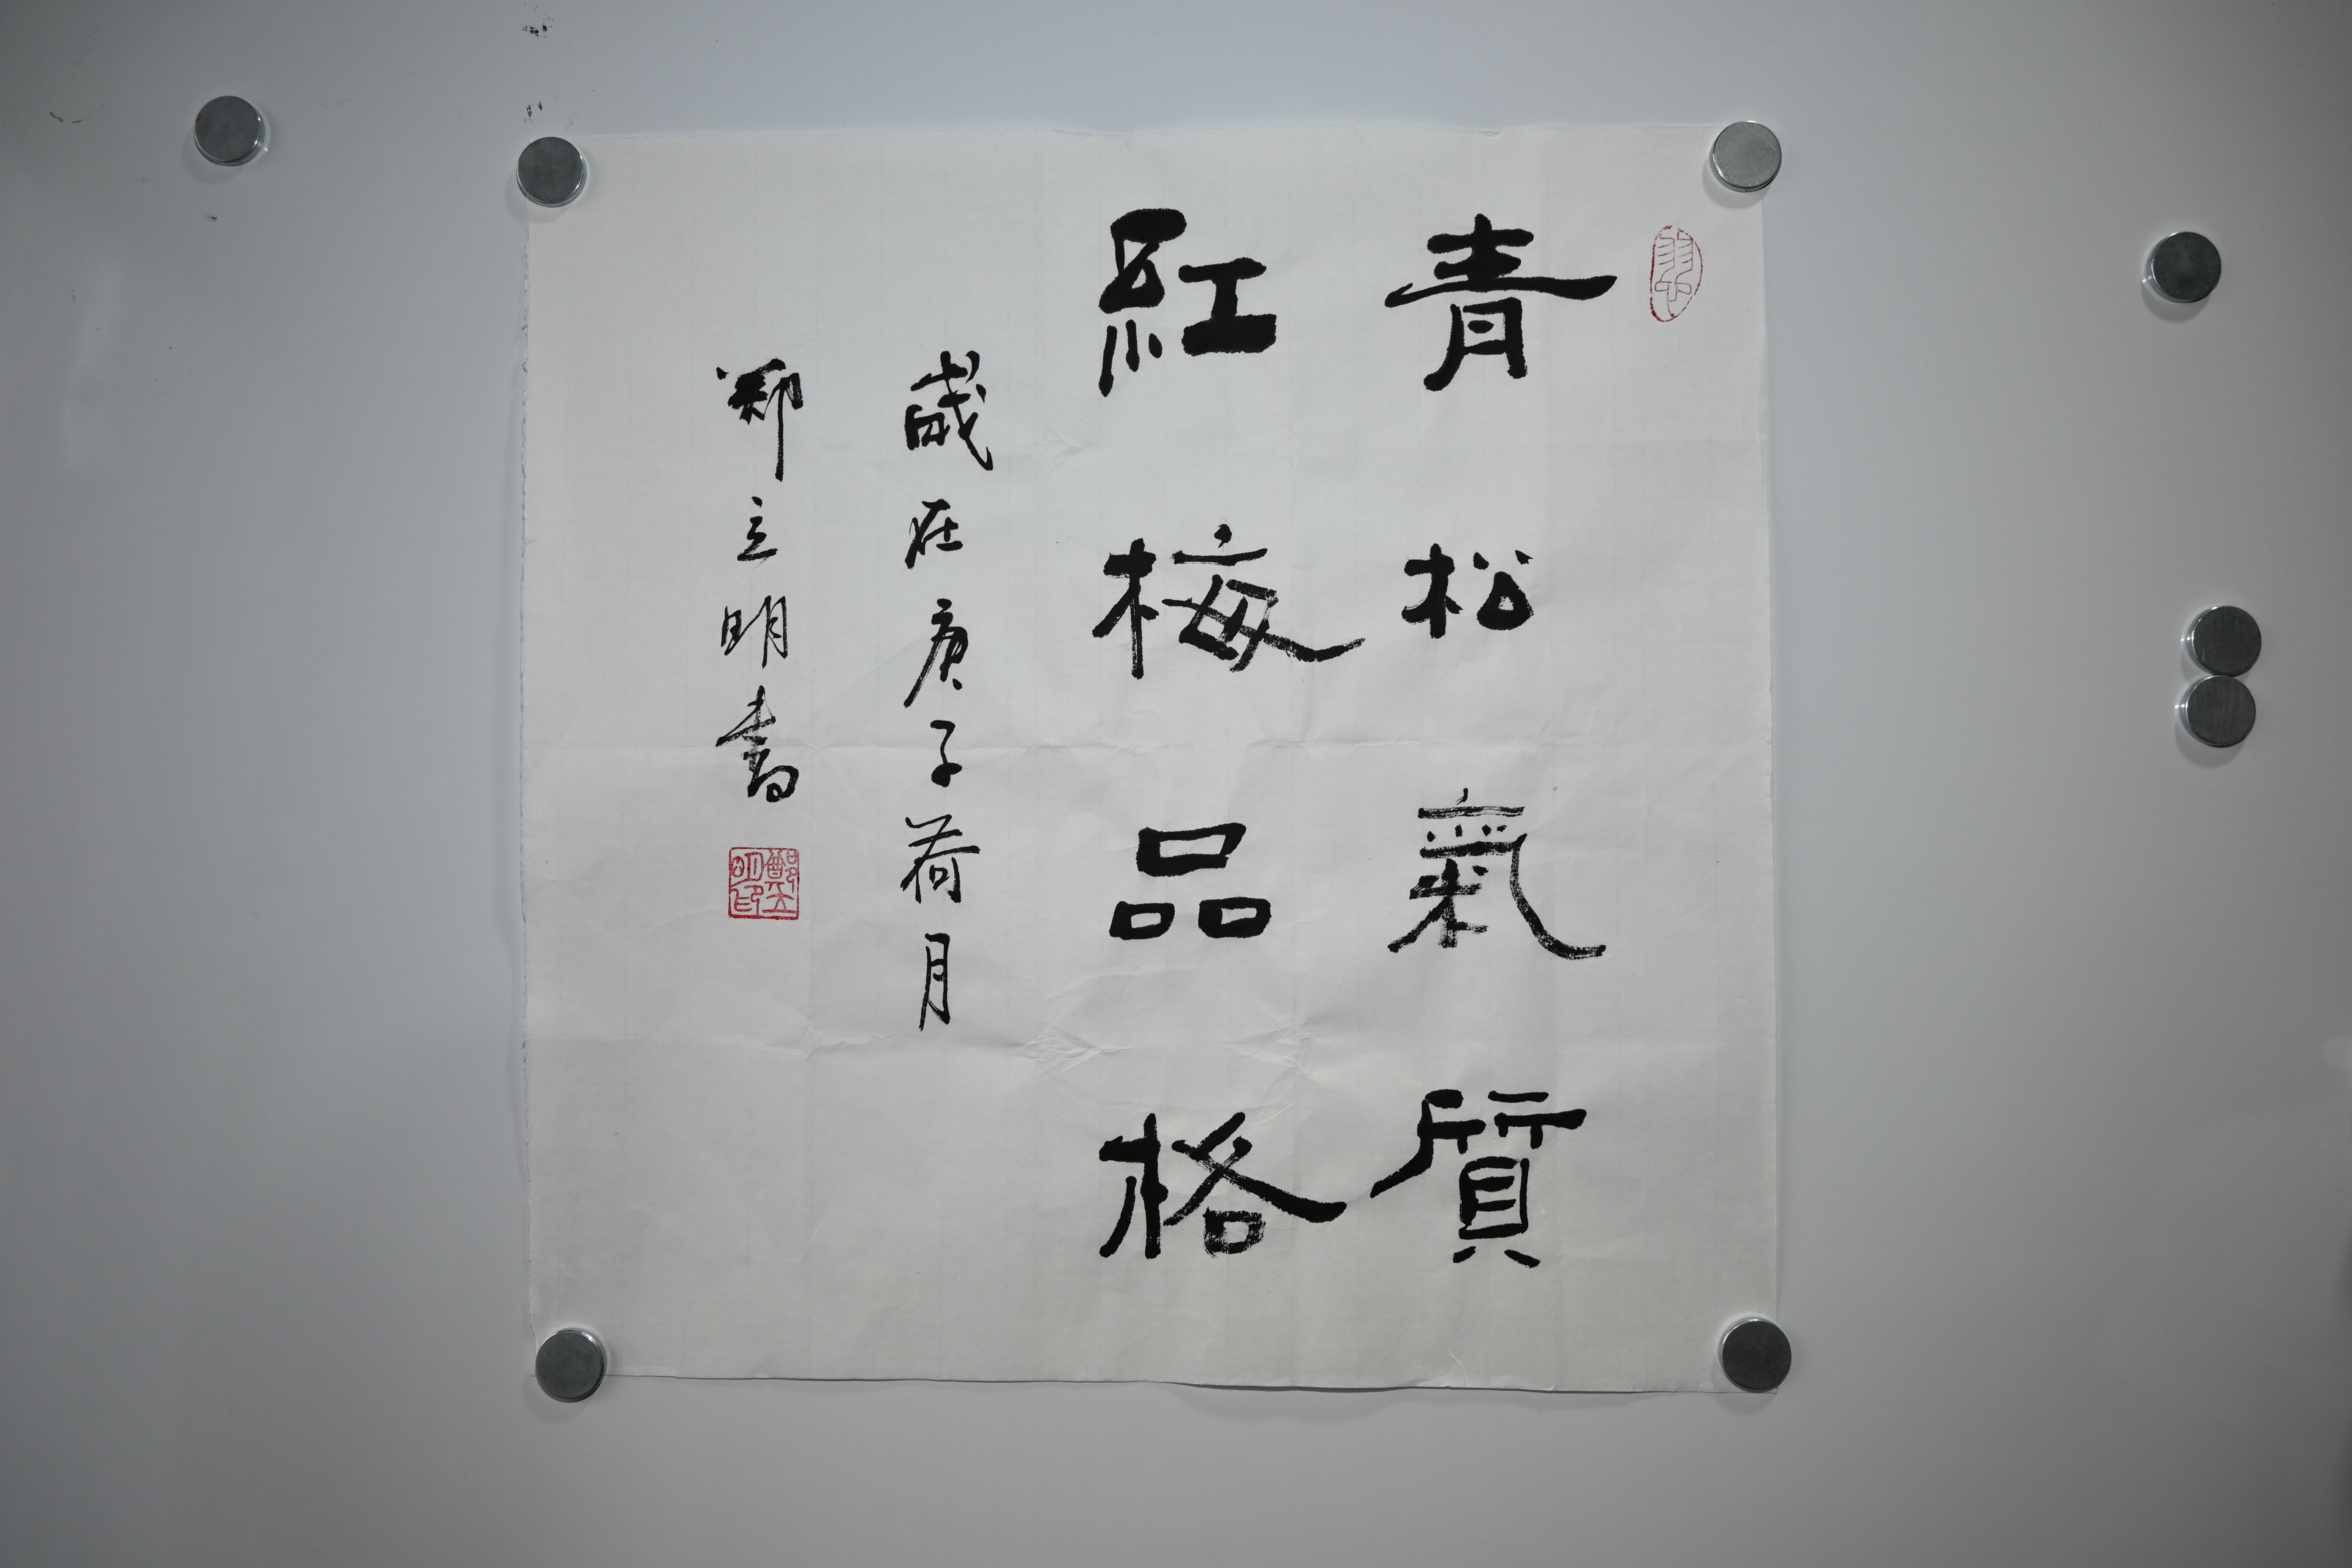 青松氣質
紅梅品格
歲在庚子荷月
郑立明書
鄭立明印